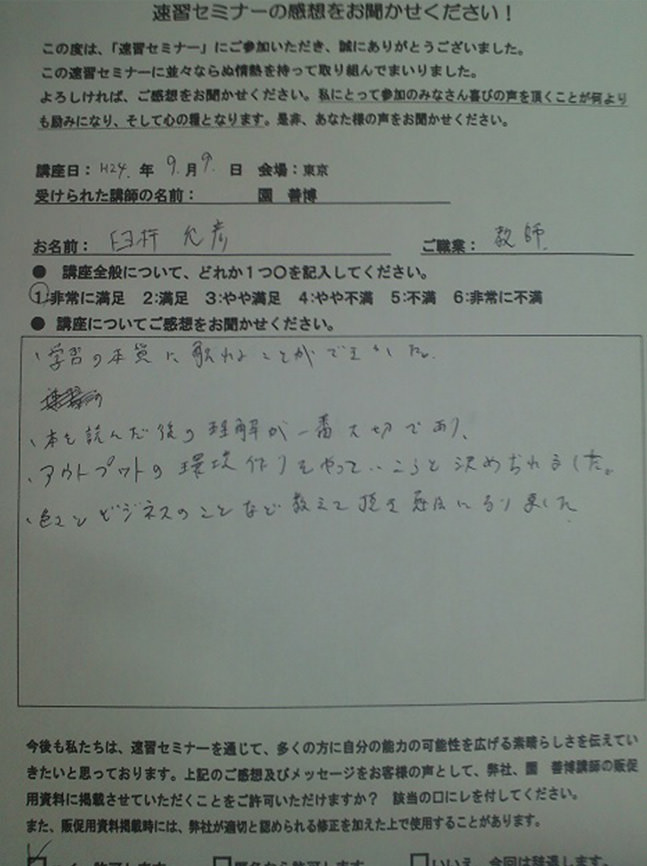 速習セミナーの感想をお聞かせください！
この度は、「速習セミナー」にご参加いただき、誠にありがとうございました。
この速習セミナーに並々ならぬ情熱を持って取り組んでまいりました。
よろしければ、ご感想をお聞かせください。私にとって参加のみなさん喜びの声を頂くことが何より
も励みになり、そして心の糧となります。是非、あなた様の声をお聞かせください。
講座日：H24. 年 9. 月 9. 日 会場：東京
受けられた講師の名前： 園 善博
お名前： 臼杵 允彦 ご職業： 教師
● 講座全般について、どれか１つ〇を記入してください。
1:非常に満足 2:満足 3:やや満足 4:やや不満 5:不満 6:非常に不満
● 講座についてご感想をお聞かせください。
、学習の本質に触れることができました。
、本を読んだ後の理解が一番大切であり、
、アウトプットの環境作りをやっていこうと決められました。
、色々とビジネスのことなど教えて頂き になりました
今後も私たちは、速習セミナーを通じて、多くの方に自分の能力の可能性を広げる素晴らしさを伝えてい
きたいと思っております。上記のご感想及びメッセージをお客様の声として、弊社、園 善博講師の販促
用資料に掲載させていただくことをご許可いただけますか？ 該当の口にレを付してください。
また、販促用資料掲載時には、弊社が適切と認められる修正を加えた上で使用することがあります。